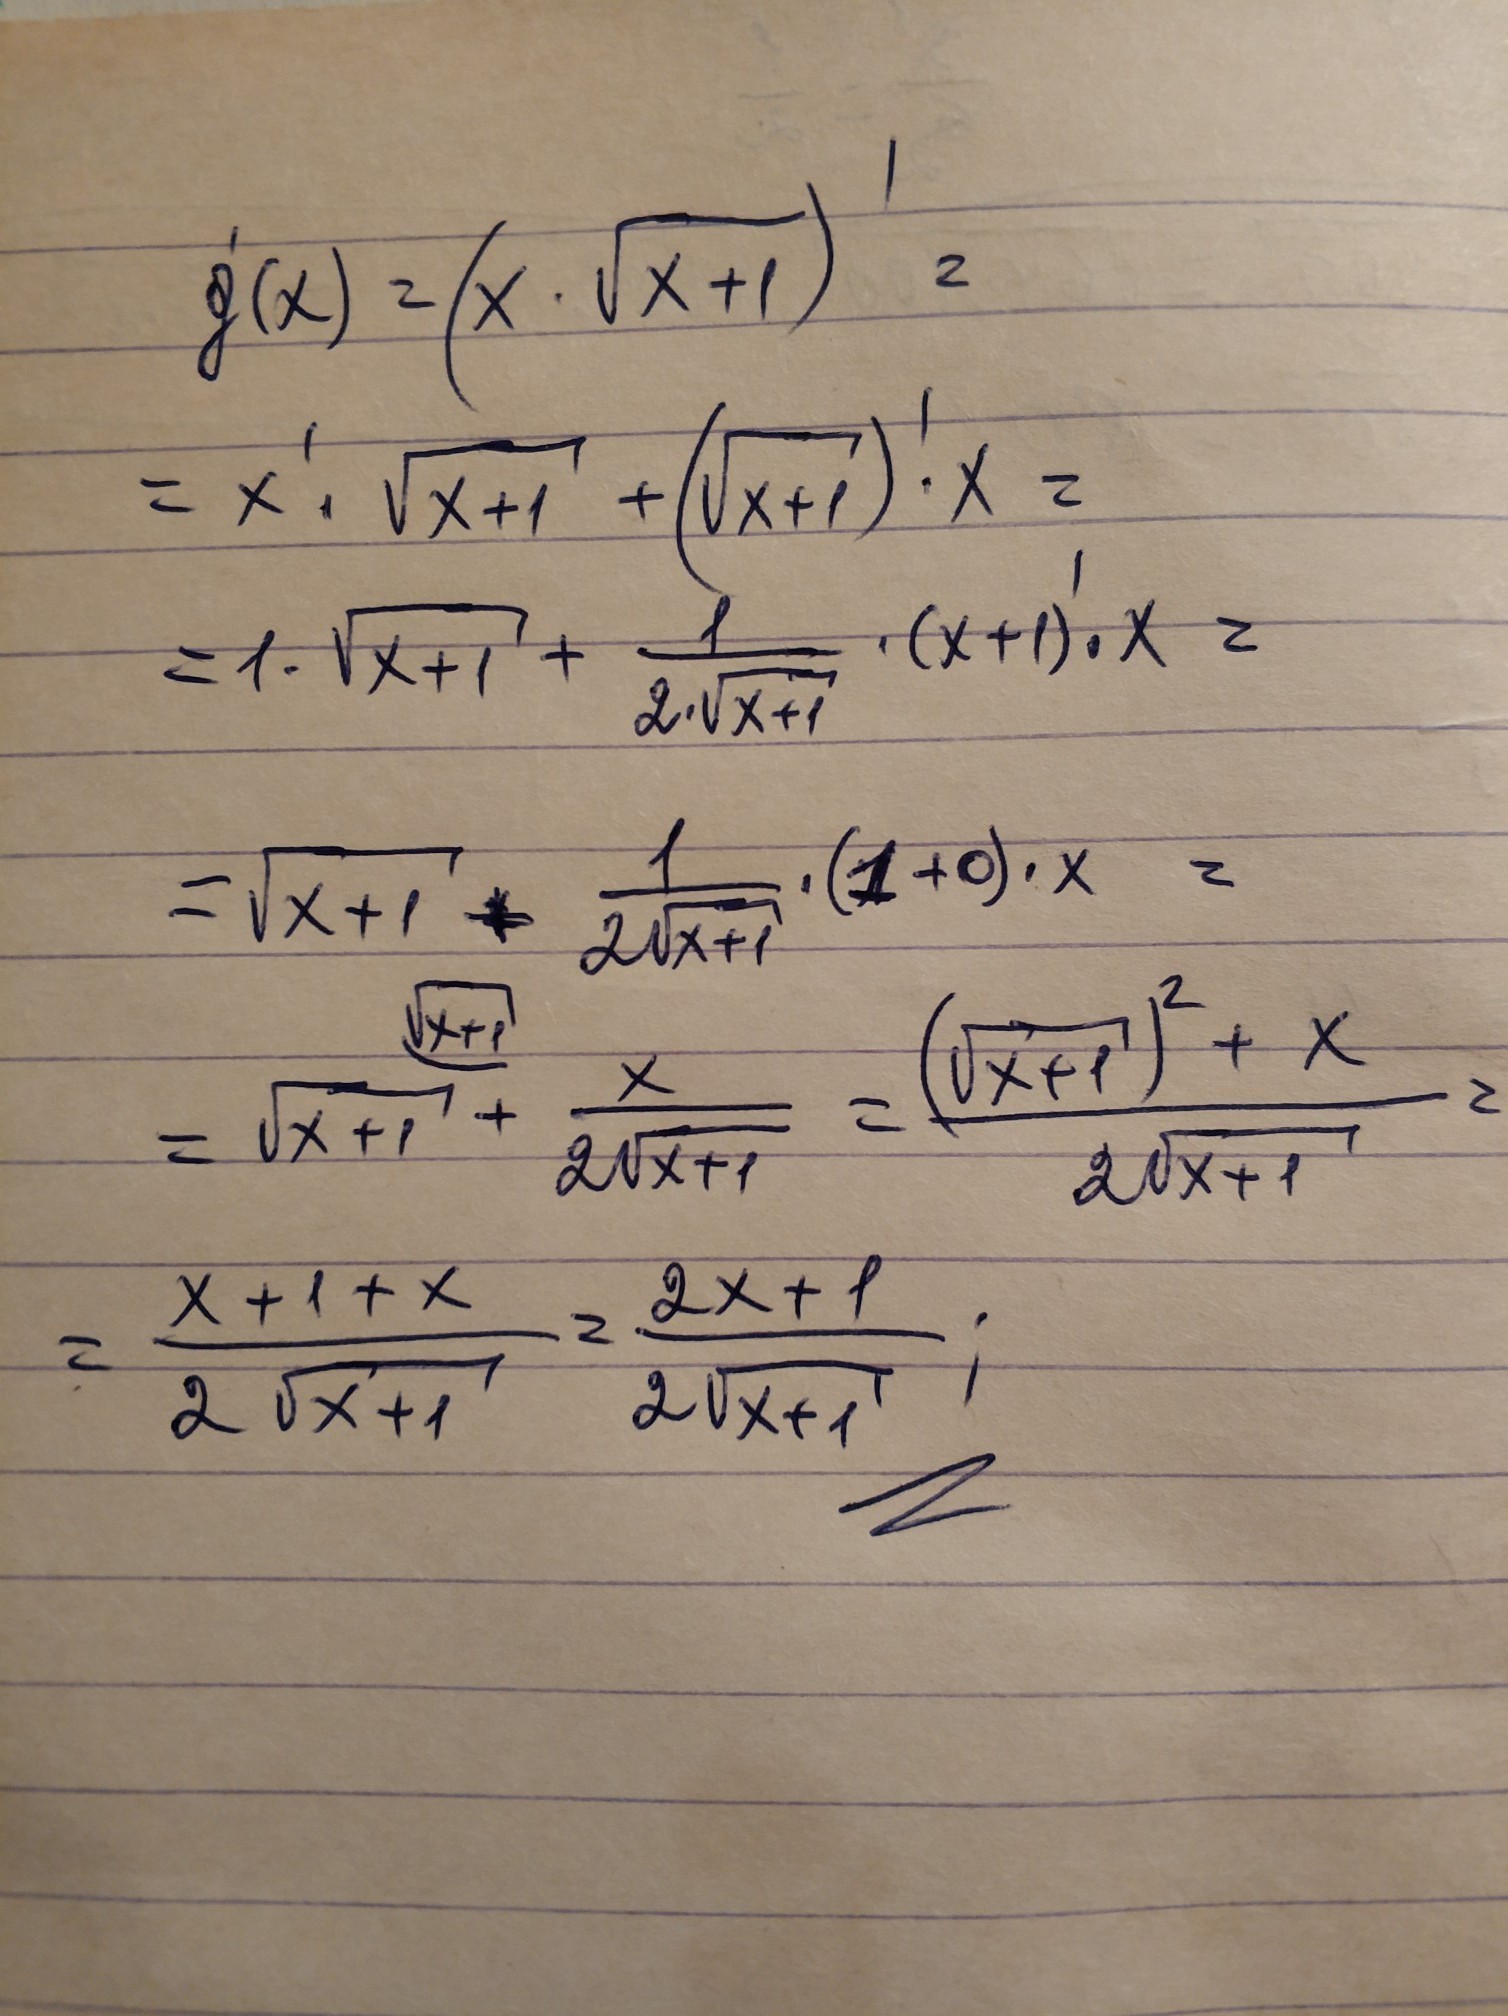 g'(x) = (x · √(x+1))' =
= x' · √(x+1) + (√(x+1))' · x =
= 1 · √(x+1) + 1/(2·√(x+1)) · (x+1)' · x =
= √(x+1) + 1/(2√(x+1)) · (1+0) · x =
√(x+1)
= √(x+1) + x/(2√(x+1)) = ((√(x+1))² + x)/(2√(x+1)) =
= (x+1+x)/(2√(x+1)) = (2x+1)/(2√(x+1)) ;